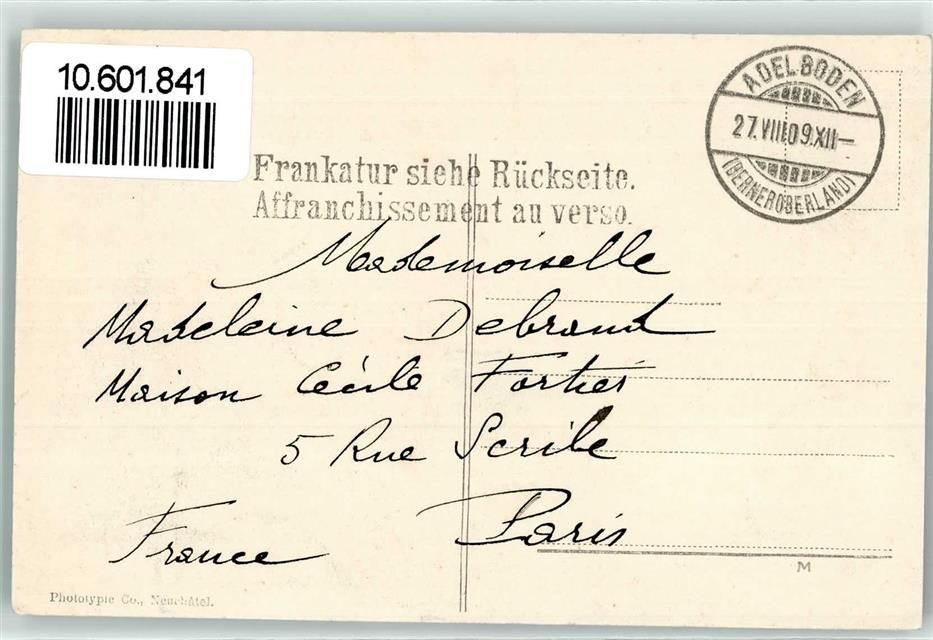 10.601.841
ADELBODEN
27.VIII.09.XII–
(BERNEROBERLAND)
Frankatur siehe Rückseite.
Affranchissement au verso.
Mademoiselle
Madeleine Debrand
Maison Cécile Fortier
5 Rue Scribe
Paris
France
M
Phototypie Co., Neuchâtel.